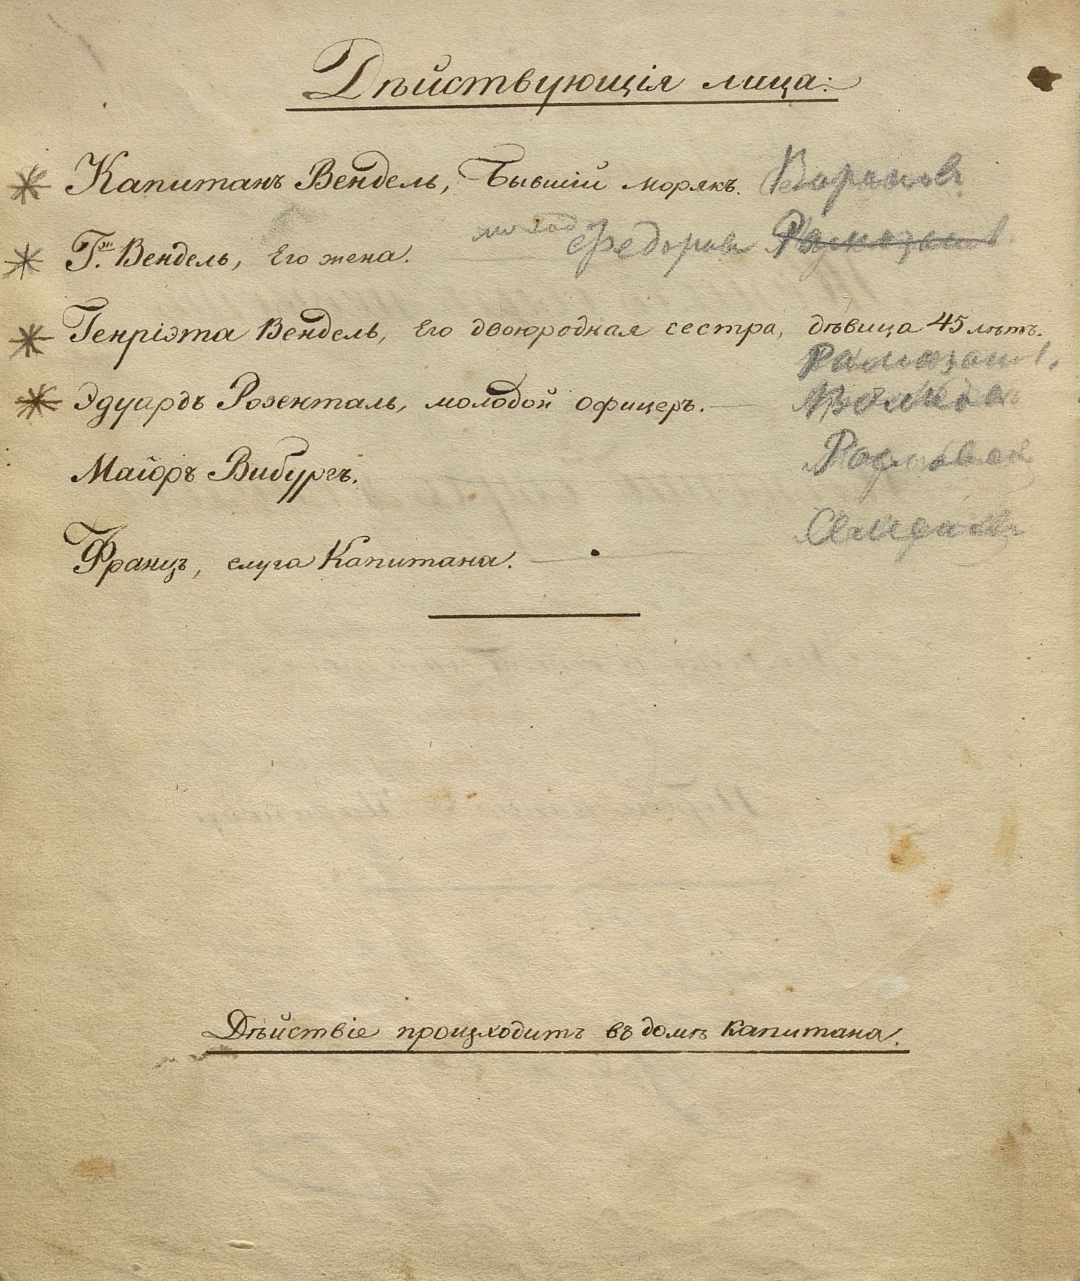 Дѣйствующія лица:
Капитанъ Вендель, Бывшій морякъ. Воронов
Г.жа Вендель, Его жена. молод Федорова Рамазанов
Генріэта Вендель, Его двоюродная сестра, дѣвица 45 лѣтъ.
Рамазанов.
Эдуардъ Розенталь, молодой офицеръ.
Маіоръ Вибургъ.
Францъ, слуга Капитана.
Дѣйствіе произходитъ въ домѣ Капитана.